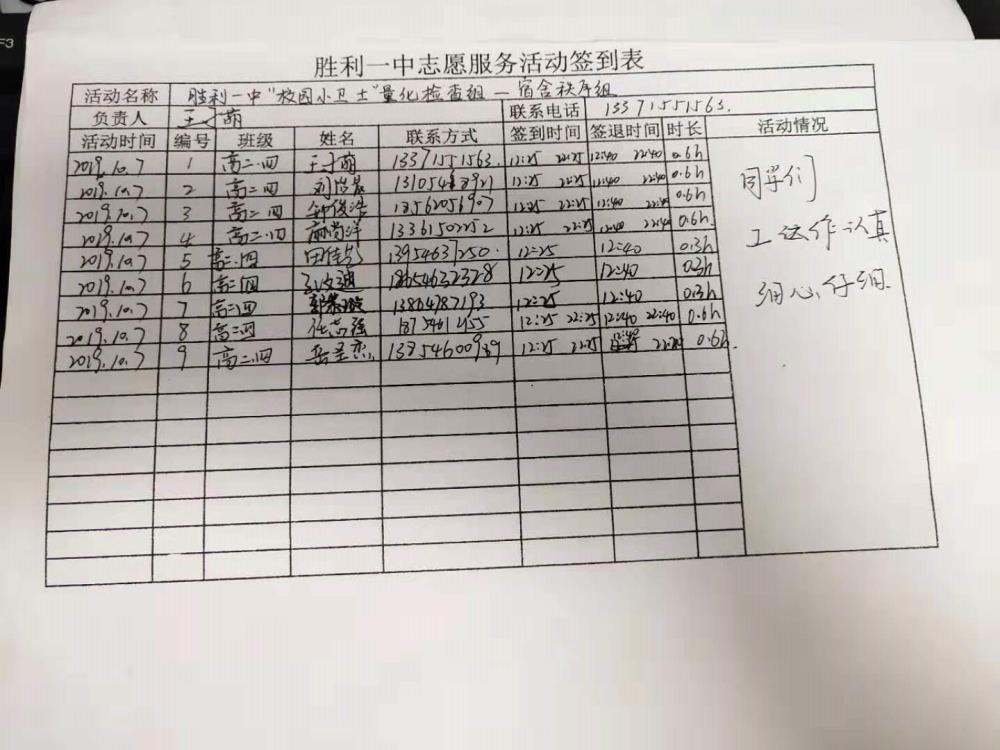 F3
胜利一中志愿服务活动签到表
活动名称 胜利一中"校园小卫士"量化检查组—宿舍秩序组
负责人 王子萌 联系电话 13371551563.
活动时间 编号 班级 姓名 联系方式 签到时间 签退时间 时长 活动情况
2019.10.7 1 高二.四 王子萌 13371551563 12:25 22:25 12:40 22:40 0.6h
2019.10.7 2 高二四 12:25 22:25 12:40 22:40 0.6h
2019.10.7 3 高二.四 钟俊浩 12:25 22:25 12:40 22:40 0.6h
2019.10.7 4 高二.四 13361502252 12:25 22:25 12:40 22:40 0.6h
2019.10.7 5 高二.四 12:25 12:40 0.3h
2019.10.7 6 高二四 12:25 12:40 0.3h
2019.10.7 7 高二四 13864787193 12:25 12:40 0.3h
2019.10.7 8 高二四 12:25 22:25 12:40 22:40 0.6h
2019.10.7 9 高二.四 12:25 22:25 0.6h.
同学们
工作认真
细心,仔细.